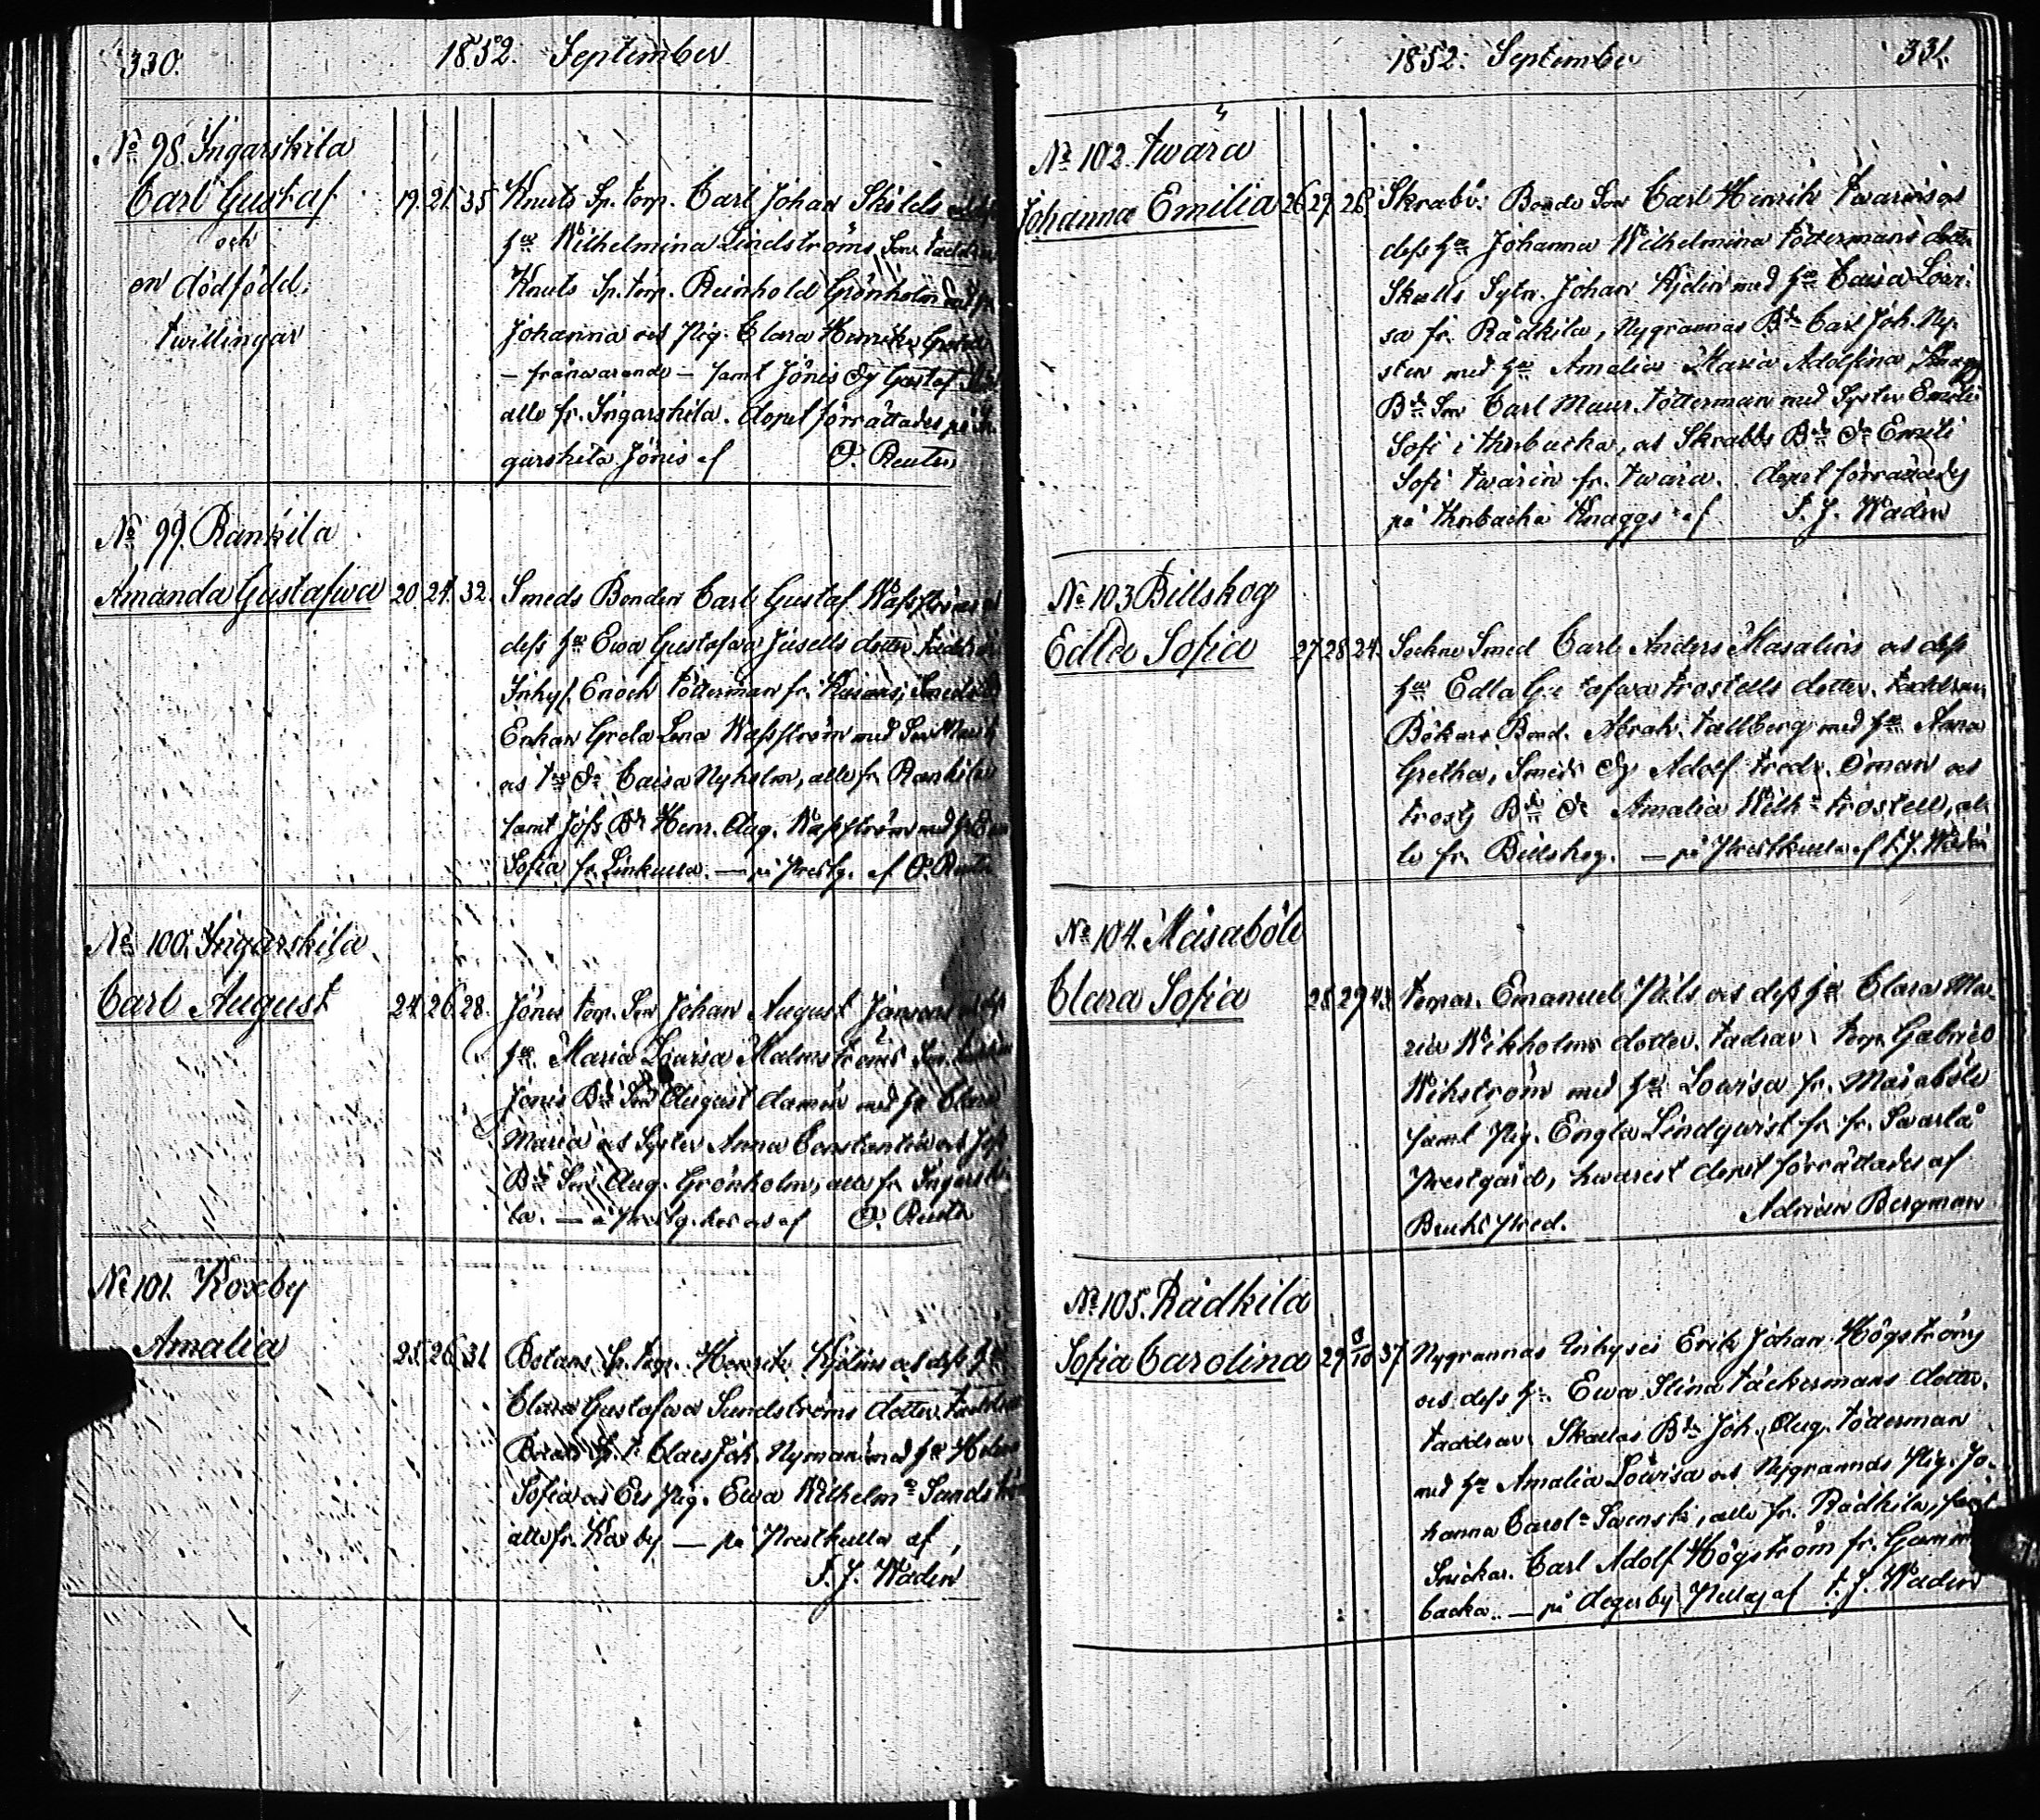 330. 1852. September
No 98. Ingarskila
Carl Gustaf 19. 21. 35 Knuts Sp. torp. Carl Johan Skilds
och hu Wilhelmina Lindströms Son. Faddrar
en dödfödd, Knuts Sp. torp. Reinhold Grönholm med hu
twillingar Johanna och Pig. Clara Henrika
— frånwarande — samt Jönis Dg Gustaf
alle fr. Ingarskila. dopet förrättades på In-
garskila Jönis af O. Reuter
No 99. Rankila
Amanda Gustafwa 20. 24. 32. Smeds Bonden Carl Gustaf Wasströms
dess hu Ewa Gustafwa Jusells dotter. Faddrar
Inhys. Enoch Tötterman fr.
Enkan Greta Lena Wasström med Son
Caisa Nyholm, alle fr. Rankila
samt Joss Bd Henr. Aug. Wasström med hu Ewa
Sofia fr. Linkulla. — på Prestg. af O. Reuter
No 100. Ingarskila
Carl August 24. 26. 28. Jönis torp. Son Johan August Jansons
hu Maria Lowisa Malmströms Son.
Jönis Bd Son August Damén med hu Clara
Maria och Syster Anna Constantia och Joss
Bd Son Aug. Grönholm, alle fr. Ingarski-
la. — i Prestg. af O. Reuter
No 101. Koxby
Amalia 25. 26. 31 Botans Sp. torp. Henrik Hjelins och dess hu
Clara Gustafwa Sundströms dotter. Faddrar
Claes Joh. Nyman med hu Helena
Sofia och Ers Pig. Ewa Wilhelma Sandström
alle fr. Koxby — på Prestkulla af
F. J. Wadén
1852. September 331.
No 102. Twära
Johanna Emilia 26. 27. 26. Skrabb: Bonde Son Carl Henrik Twarins och
dess hu Johanna Wilhelmina Töttermans dotter
Skalls Sytn. Johan Hjelin med hu Caisa Lowi-
sa fr. Rådkila, Nygrannas Bd Carl Joh. Ny-
sten med hu Amalia Maria Adolfina, Knaggs
Bd Son Carl Maur. Tötterman med Syster Emili
Sofi i Thorbacka, och Skrabbs Bd Dr Emili
Sofi Twärin fr. Twära. dopet förrättades
på Thorbacka Knaggs af F. J. Wadén
No 103 Billskog
Edla Sofia 27. 28. 24. Sockne Smed Carl Anders Masalins och dess
hu Edla Gustafwa Trostells dotter. Faddrar
Bökars Bond. Abrah. Tallberg med hu Anna
Gretha, Smeds Dg Adolf Fredr. Öman och
Trosts Bd Dr Amalia Wilhа Trostell, al-
le fr. Billskog. — på Prestkulla af F. J. Wadén
No 104. Måsaböle
Clara Sofia 28. 29. 43. Temar. Emanuel Nils och dess hu Clara Ma-
ria Wikholms dotter. Fadrar Torp. Gabriel
Wikström med hu Lowisa fr. Måsaböle
samt Pig. Engla Lindqwist fr. fr. Swartå
Prestgård, hwarest dopet förrättades af
Bruks Pred. Adrian Bergman
No 105. Rådkila
Sofia Carolina 29 8/10 37. Nygrannas Inhyses Erik Johan Högströms
och dess hu Ewa Stina Täckermans dotter.
Faddrar Skallas Bd Joh. Aug. Töderman
med hu Amalia Lowisa och Nygrannds Pig. Jo-
hanna Carola Swensk, alle fr. Rådkila, samt
Snickar. Carl Adolf Högström fr. Gammel-
backa. — på Degerby Nellas af F. J. Wadén